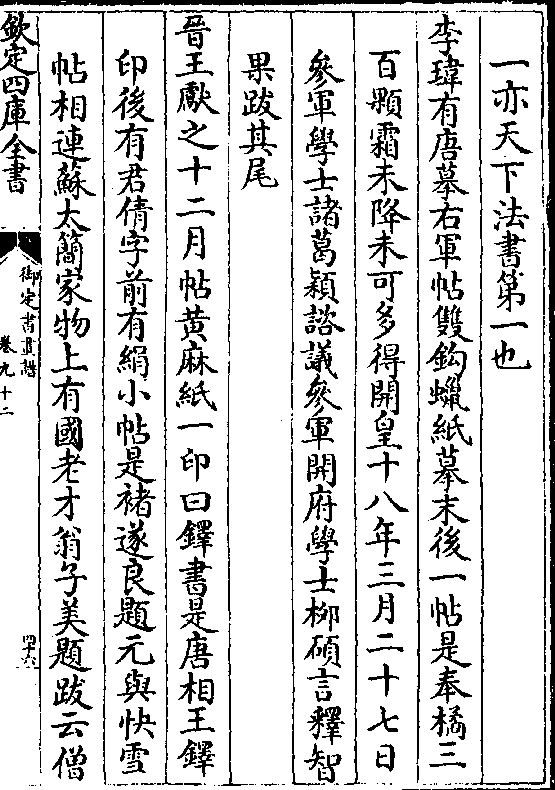 一亦天下法書第一也
李瑋有唐摹右軍帖雙鈎蠟紙摹末後一帖是奉橘三
百顆霜未降未可多得開皇十八年三月二十七日
參軍學士諸葛穎諮議參軍開府學士柳顧言釋智
果跋其尾
晉王獻之十二月帖黄麻紙一印曰鐸書是唐相王鐸
印後有君倩字前有絹小帖是褚遂良題元與快雪
帖相連蘇太簡家物上有國老才翁子美題跋云僧
欽定四庫全書
御定書畫譜
卷九十二
四十六